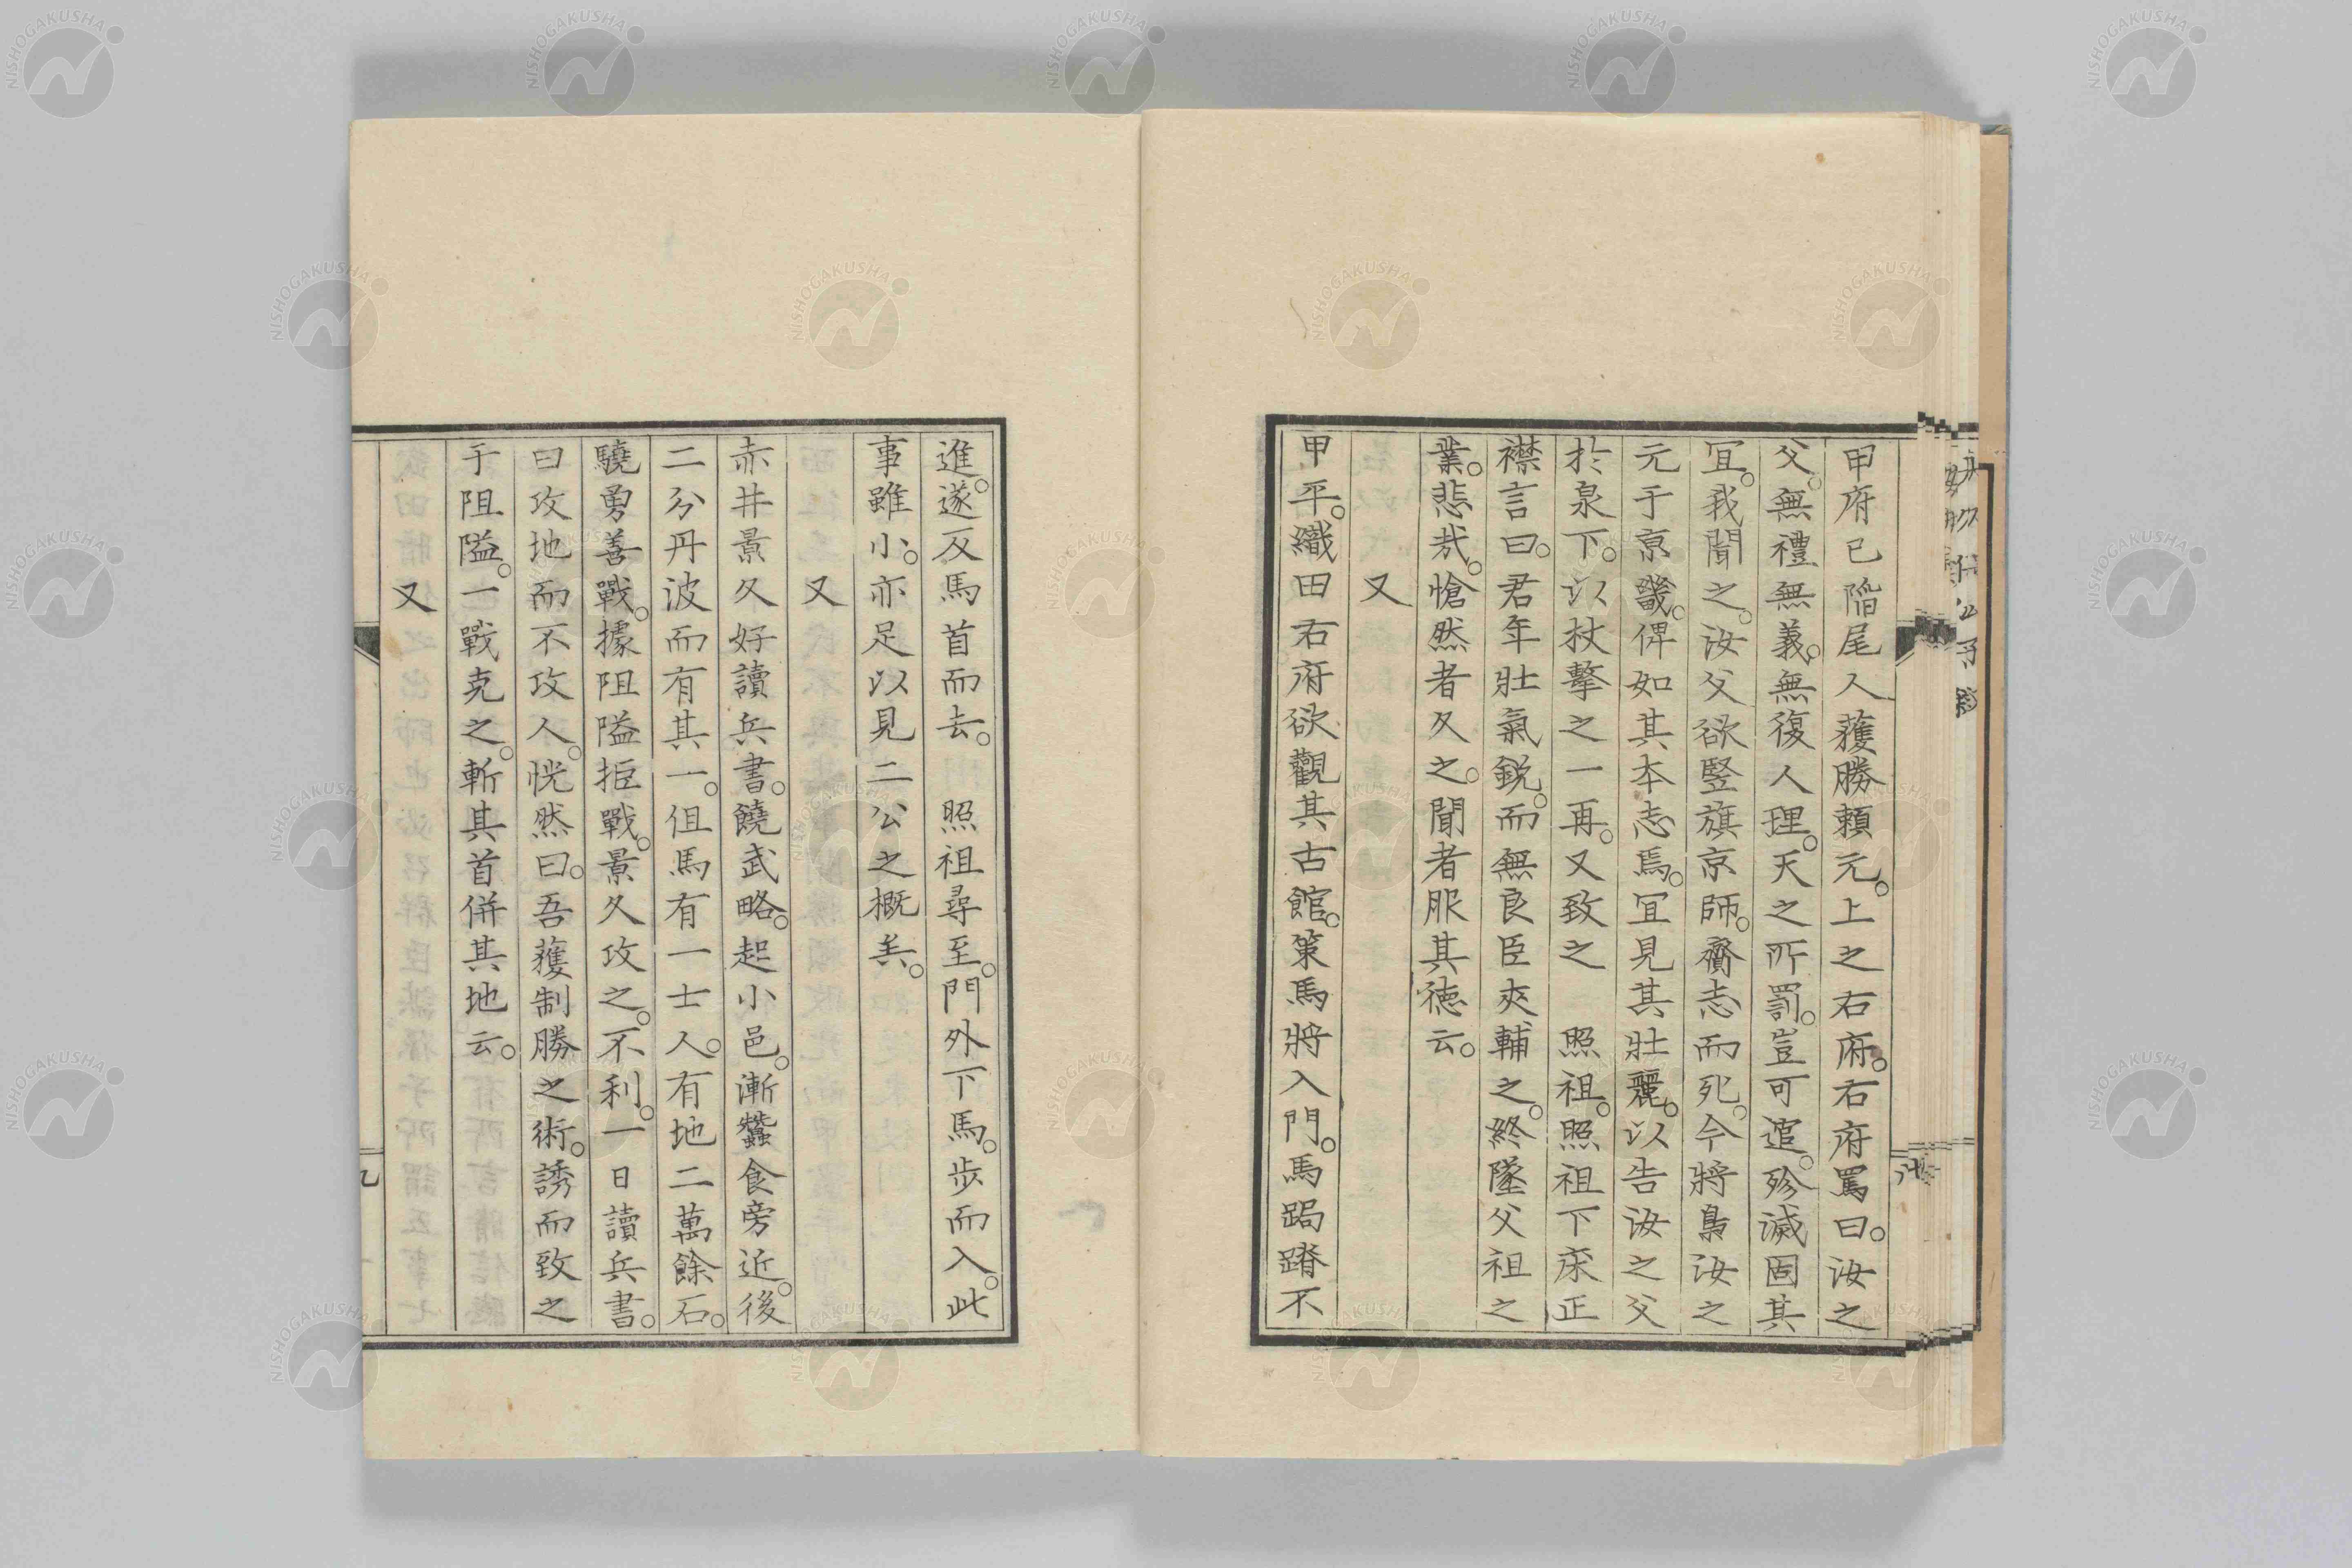 甲府已陷尾人獲勝頼元。上之右府。右府罵曰。汝之
父。無禮無義。無復人理。天之所罰。豈可逭。殄滅固其
宜。我聞之。汝父欲竪旗京師。齎志而死。今將梟汝之
元于京畿。俾如其本志焉。宜見其壮麗。以告汝之父
於泉下。以杖擊之一再。又致之　照祖。照祖下床正
襟言曰。君年壯氣鋭。而無良臣夾輔之。終墜父祖之
業。悲哉。愴然者久之。聞者服其徳云。
又
甲平。織田右府欲觀其古館。策馬將入門。馬跼蹐不
進。遂反馬首而去。　照祖尋至。門外下馬。歩而入。此
事雖小。亦足以見二公之概矣。
又
赤井景久好讀兵書。饒武略。起小邑。漸蠶食旁近。後
二分丹波而有其一。但馬有一士人。有地二萬餘石。
驍勇善戰。據阻隘拒戰。景久攻之。不利。一日讀兵書。
曰攻地而不攻人。恍然曰。吾獲制勝之術。誘而致之
于阻隘。一戰克之。斬其首併其地云。
又
九
NISHOGAKUSHA